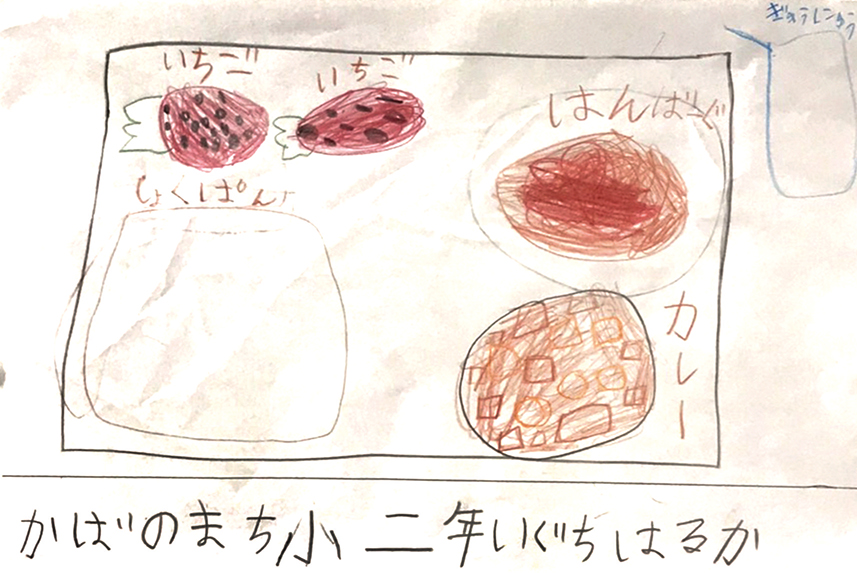 ぎゅうにゅう
いちご
いちご
はんばーぐ
しょくぱん
カレー
かばのまち小二年いぐちはるか